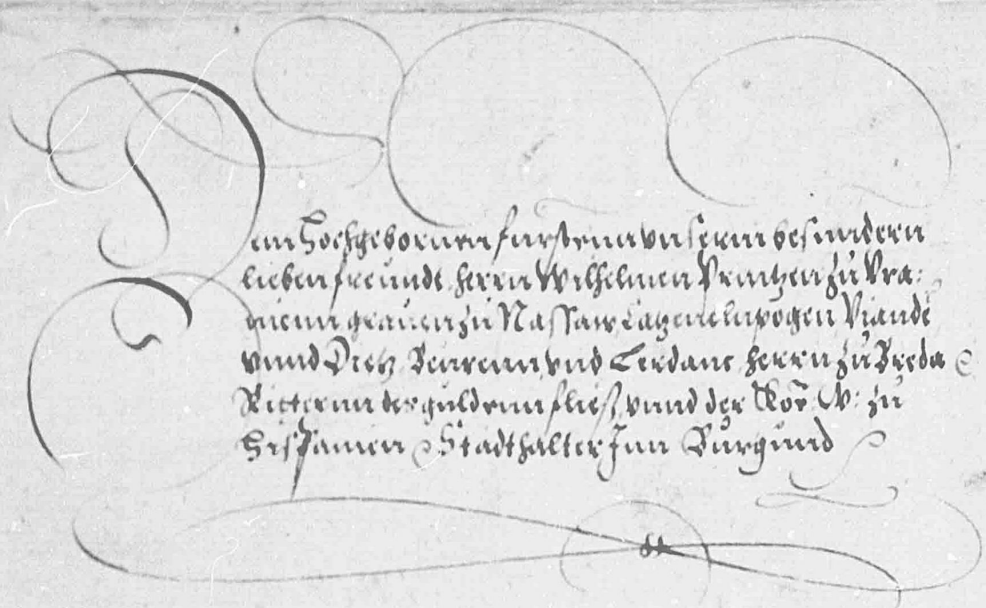 Dem Hochgebornen fursten unnserm besundern
lieben freundt herrn Wilhelmen Printzen zu Vra:
nienn grauen zu Nassaw Catzenelnpogen Viande
vnnd Dietz Beurenn vnd Lerdanc herrn zu Breda
Rittern des guldenn fließ vnnd der Kön: W: zu
Hispanien Stadthalter Inn Burgund